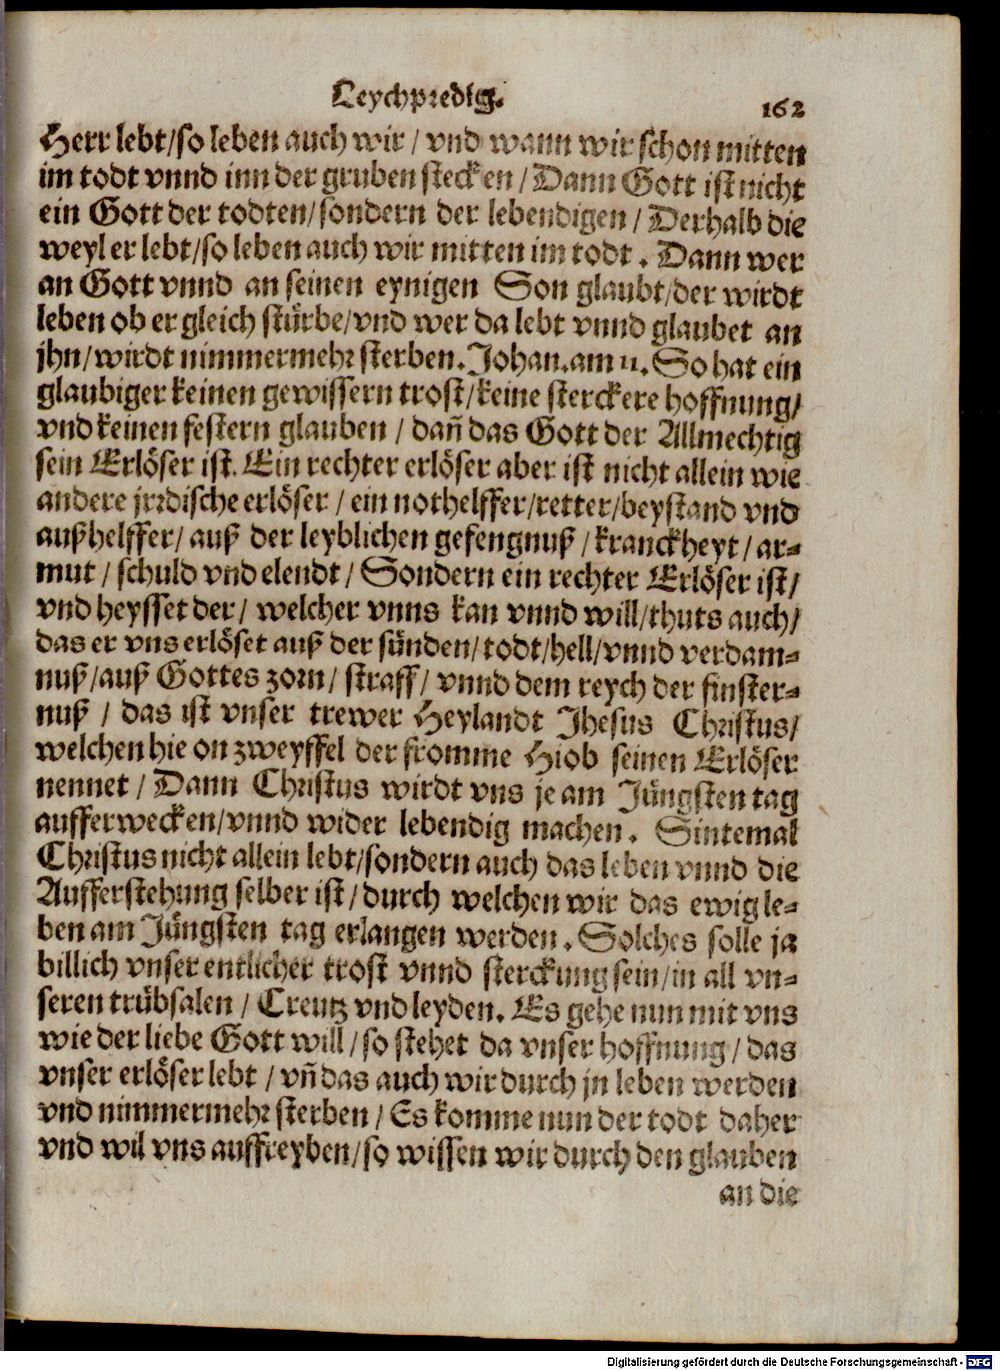 Leychpredig.
162
Herr lebt/so leben auch wir / vnd wann wir schon mitten
im todt vnnd inn der gruben stecken / Dann Gott ist nicht
ein Gott der todten/sondern der lebendigen / Derhalb die
weyl er lebt/so leben auch wir mitten im todt. Dann wer
an Gott vnnd an seinen eynigen Son glaubt/der wirdt
leben ob er gleich stürbe/vnd wer da lebt vnnd glaubet an
jhn/wirdt nimmermehr sterben. Johan.am 11. So hat ein
glaubiger keinen gewissern trost/keine sterckere hoffnung/
vnd keinen festern glauben / dañ das Gott der Allmechtig
sein Erlöser ist. Ein rechter erlöser aber ist nicht allein wie
andere jrrdische erlöser / ein nothelffer/retter/beystand vnd
außhelffer/ auß der leyblichen gefengnuß / kranckheyt/ ar-
mut / schuld vnd elendt / Sondern ein rechter Erlöser ist/
vnd heysset der/ welcher vnns kan vnnd will/thuts auch/
das er vns erlöset auß der sünden/todt/hell/vnnd verdam-
nuß/auß Gottes zorn/ straff/ vnnd dem reych der finster-
nuß / das ist vnser trewer Heylandt Jhesus Christus/
welchen hie on zweyffel der fromme Hiob seinen Erlöser
nennet / Dann Christus wirdt vns je am Jüngsten tag
aufferwecken/vnnd wider lebendig machen. Sintemal
Christus nicht allein lebt/sondern auch das leben vnnd die
Aufferstehung selber ist/durch welchen wir das ewig le-
ben am Jüngsten tag erlangen werden. Solches solle ja
billich vnser entlicher trost vnnd sterckung sein/in all vn-
seren trübsalen / Creutz vnd leyden. Es gehe nun mit vns
wie der liebe Gott will/so stehet da vnser hoffnung/ das
vnser erlöser lebt / vñ das auch wir durch jn leben werden
vnd nimmermehr sterben / Es komme nun der todt daher
vnd wil vns auffreyben/so wissen wir durch den glauben
an die
Digitalisierung gefördert durch die Deutsche Forschungsgemeinschaft - DFG